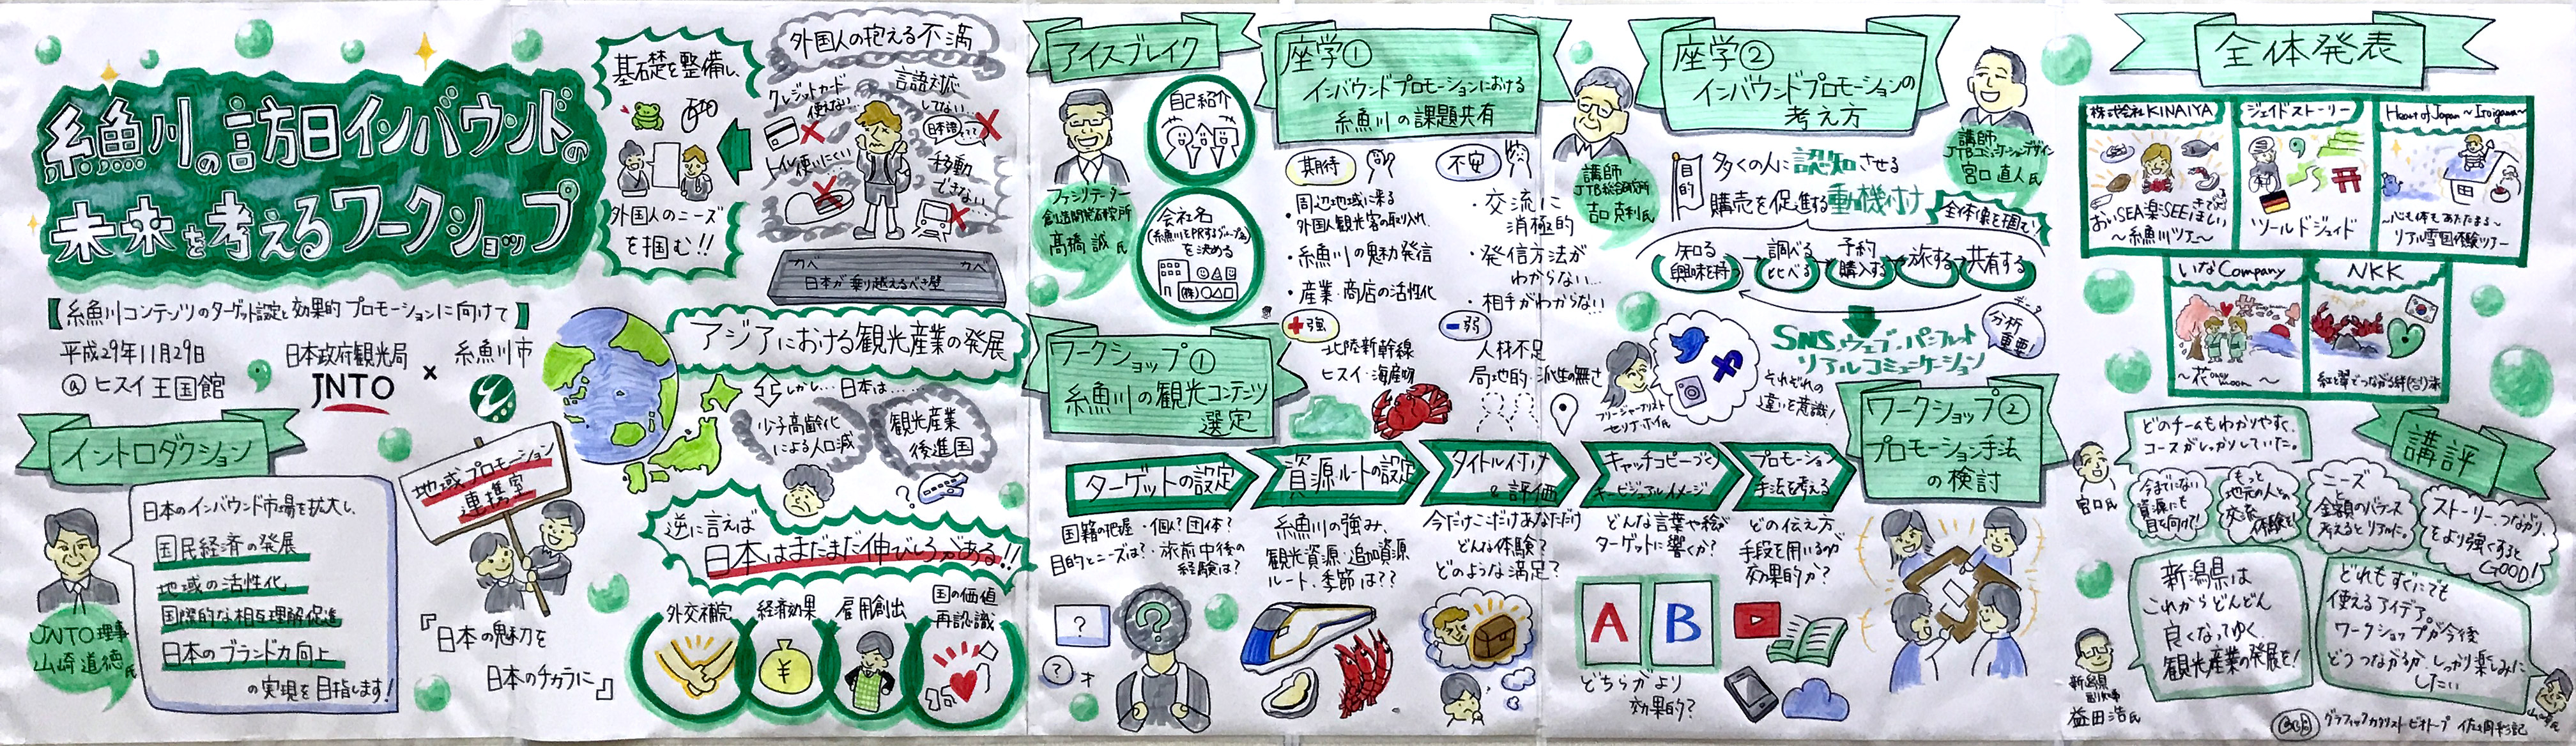 糸魚川の訪日インバウンドの
未来を考えるワークショップ
【糸魚川コンテンツのターゲット設定と効果的プロモーションに向けて】
平成29年11月29日
@ヒスイ王国館
日本政府観光局
JNTO
×
糸魚川市
イントロダクション
日本のインバウンド市場を拡大し、
国民経済の発展
地域の活性化
国際的な相互理解促進
日本のブランド力向上
の実現を目指します!
JNTO理事
山崎道徳氏
地域プロモーション
連携室
『日本の魅力を
日本のチカラに』
基礎を整備し、
外国人のニーズ
を掴む!!
外国人の抱える不満
クレジットカード
使えない…
言語対応
してない…
日本語
トイレ使いにくい
移動
できない…
カベ
カベ
日本が乗り越えるべき壁
アジアにおける観光産業の発展
しかし…日本は……
少子高齢化
による人口減
観光産業
後進国
?
逆に言えば
日本はまだまだ伸びしろがある!!
外交補完
経済効果
¥
雇用創出
国の価値
再認識
アイスブレイク
ファシリテーター
創造開発研究所
髙橋誠氏
自己紹介
会社名
(糸魚川をPRするグループ名)
を決める
(株)○△□
座学①
インバウンドプロモーションにおける
糸魚川の課題共有
講師
JTB総合研究所
古口克利氏
期待
・周辺地域に来る
外国人観光客の取り入れ
・糸魚川の魅力発信
・産業・商店の活性化
不安
・交流に
消極的
・発信方法が
わからない…
・相手がわからない…
+強
北陸新幹線
ヒスイ・海産物
-弱
人材不足
局地的・派生の無さ
ワークショップ①
糸魚川の観光コンテンツ
選定
ターゲットの設定
国籍の把握・個人?団体?
目的とニーズは?・旅前中後の
経験は?
?
?
?
資源ルートの設定
糸魚川の強み、
観光資源・追加資源
ルート、季節は??
タイトル付け
&評価
今だけここだけあなただけ
どんな体験?
どのような満足?
キャッチコピーづくり
キービジュアルイメージ
どんな言葉や絵が
ターゲットに響くか?
A
B
どちらがより
効果的?
プロモーション
手法を考える
どの伝え方、
手段を用いるのが
効果的か?
座学②
インバウンドプロモーションの
考え方
講師
JTBコミュニケーションデザイン
宮口直人氏
目的
多くの人に認知させる
購売を促進する動機付け
全体像を掴て!
知る
興味を持つ
調べる
比べる
予約
購入する
旅する
共有する
SNS、ウェブ・パンフレット
リアルコミュニケーション
データ
分析
重要
それぞれの
違いを意識!
フリージャーナリスト
ワークショップ②
プロモーション手法
の検討
全体発表
株式会社KINAIYA
おいSEA楽SEEほしい
きて
～糸魚川ツアー～
ジェイドストーリー
ツールドジェイド
Heart of Japan ～Itoigawa～
～心も体もあたたまる～
リアル雪国体験ツアー
いなCompany
～花 moon～
NKK
紅と翠でつながる絆
講評
どのチームもわかりやすく、
コースがしっかりしていた。
宮口氏
今までにない
資源にも
目を向けて!
もっと
地元の人との
交流
体験を!
ニーズ
と
金額のバランス
考えるとリアルに。
ストーリー、つながり、
をより強くすると
GOOD!
新潟県は
これからどんどん
良くなってゆく
観光産業の発展を!
新潟県
副知事
益田浩氏
どれもすぐにでも
使えるアイデア。
ワークショップが今後
どうつながるか、しっかり楽しみに
したい
グラフィックカタリスト・ビオトープ